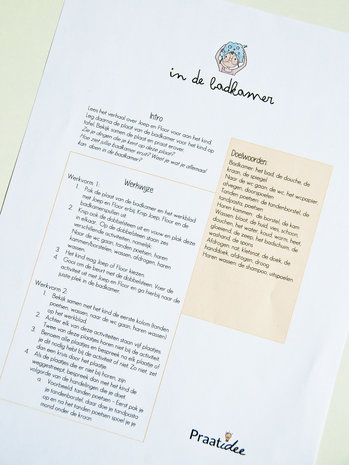 in de badkamer
Intro
Lees het verhaal over Joep en Floor voor aan het kind.
Leg daarna de plaat van de badkamer voor het kind op
tafel. Bekijk samen de plaat en praat erover.
Zie je dingen die je kent op deze plaat?
Hoe ziet jullie badkamer eruit? Weet je wat je allemaal
kan doen in de badkamer?
Doelwoorden:
Badkamer: het bad, de douche, de
kraan, de spiegel
Naar de wc gaan: de wc, het wcpapier,
afvegen, doorspoelen
Tanden poetsen: de tandenborstel, de
tandpasta, poetsen
Haren kammen: de borstel, de kam
Wassen: bloot, de huid, vies, schoon,
douchen, het water, koud, warm, heet,
gloeiend, de zeep, het badschuim, de
washand, de spons
Afdrogen: nat, kletsnat, de doek, de
handdoek, afdrogen, droog
Haren wassen: de shampoo, uitspoelen
Werkwijze
Werkvorm 1:
1. Pak de plaat van de badkamer en het werkblad
met Joep en Floor erbij. Knip Joep, Floor en de
badkamerspullen uit.
2. Knip ook de dobbelsteen uit en vouw en plak deze
in elkaar. Op de dobbelsteen staan zes
verschillende activiteiten, namelijk:
Naar de wc gaan, tanden poetsen, haren
kammen/borstelen, wassen, afdrogen, haren
wassen
3. Het kind mag Joep of Floor kiezen.
4. Gooi om de beurt met de dobbelsteen. Voer de
activiteit uit met Joep en Floor en ga hierbij naar de
juiste plek in de badkamer.
Werkvorm 2:
1. Bekijk samen met het kind de eerste kolom (tanden
poetsen, wassen, naar de wc gaan, haren wassen)
op het werkblad.
2. Achter elk van deze activiteiten staan vijf plaatjes.
Twee van deze plaatjes horen niet bij de activiteit.
3. Benoem alle plaatjes en bespreek na elk plaatje of
je dit nodig hebt bij de activiteit of niet. Zo niet, zet
dan een kruis door het plaatje.
4. Als de plaatjes die er niet bij horen, zijn
weggestreept, bespreek dan met het kind de
volgorde van de handelingen die je doet.
a. Voorbeeld: tanden poetsen - Eerst pak je
je tandenborstel, daar doe je tandpasta
op en na het tanden poetsen spoel je je
mond onder de kraan.
Praatidee